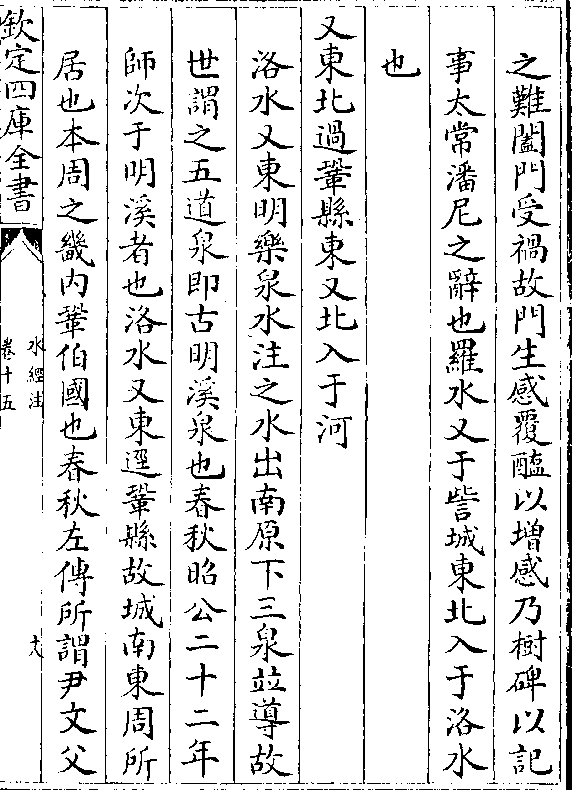 之難闔門受禍故門生感覆醢以増感乃樹碑以記
事太常潘尼之辭也羅水又于訾城東北入于洛水
也
又東北過鞏縣東又北入于河
洛水又東明樂泉水注之水出南原下三泉竝導故
世謂之五道泉即古明溪泉也春秋昭公二十二年
師次于明溪者也洛水又東逕鞏縣故城南東周所
居也本周之畿内鞏伯國也春秋左傳所謂尹文父
欽定四庫全書
水經注
卷十五
十八